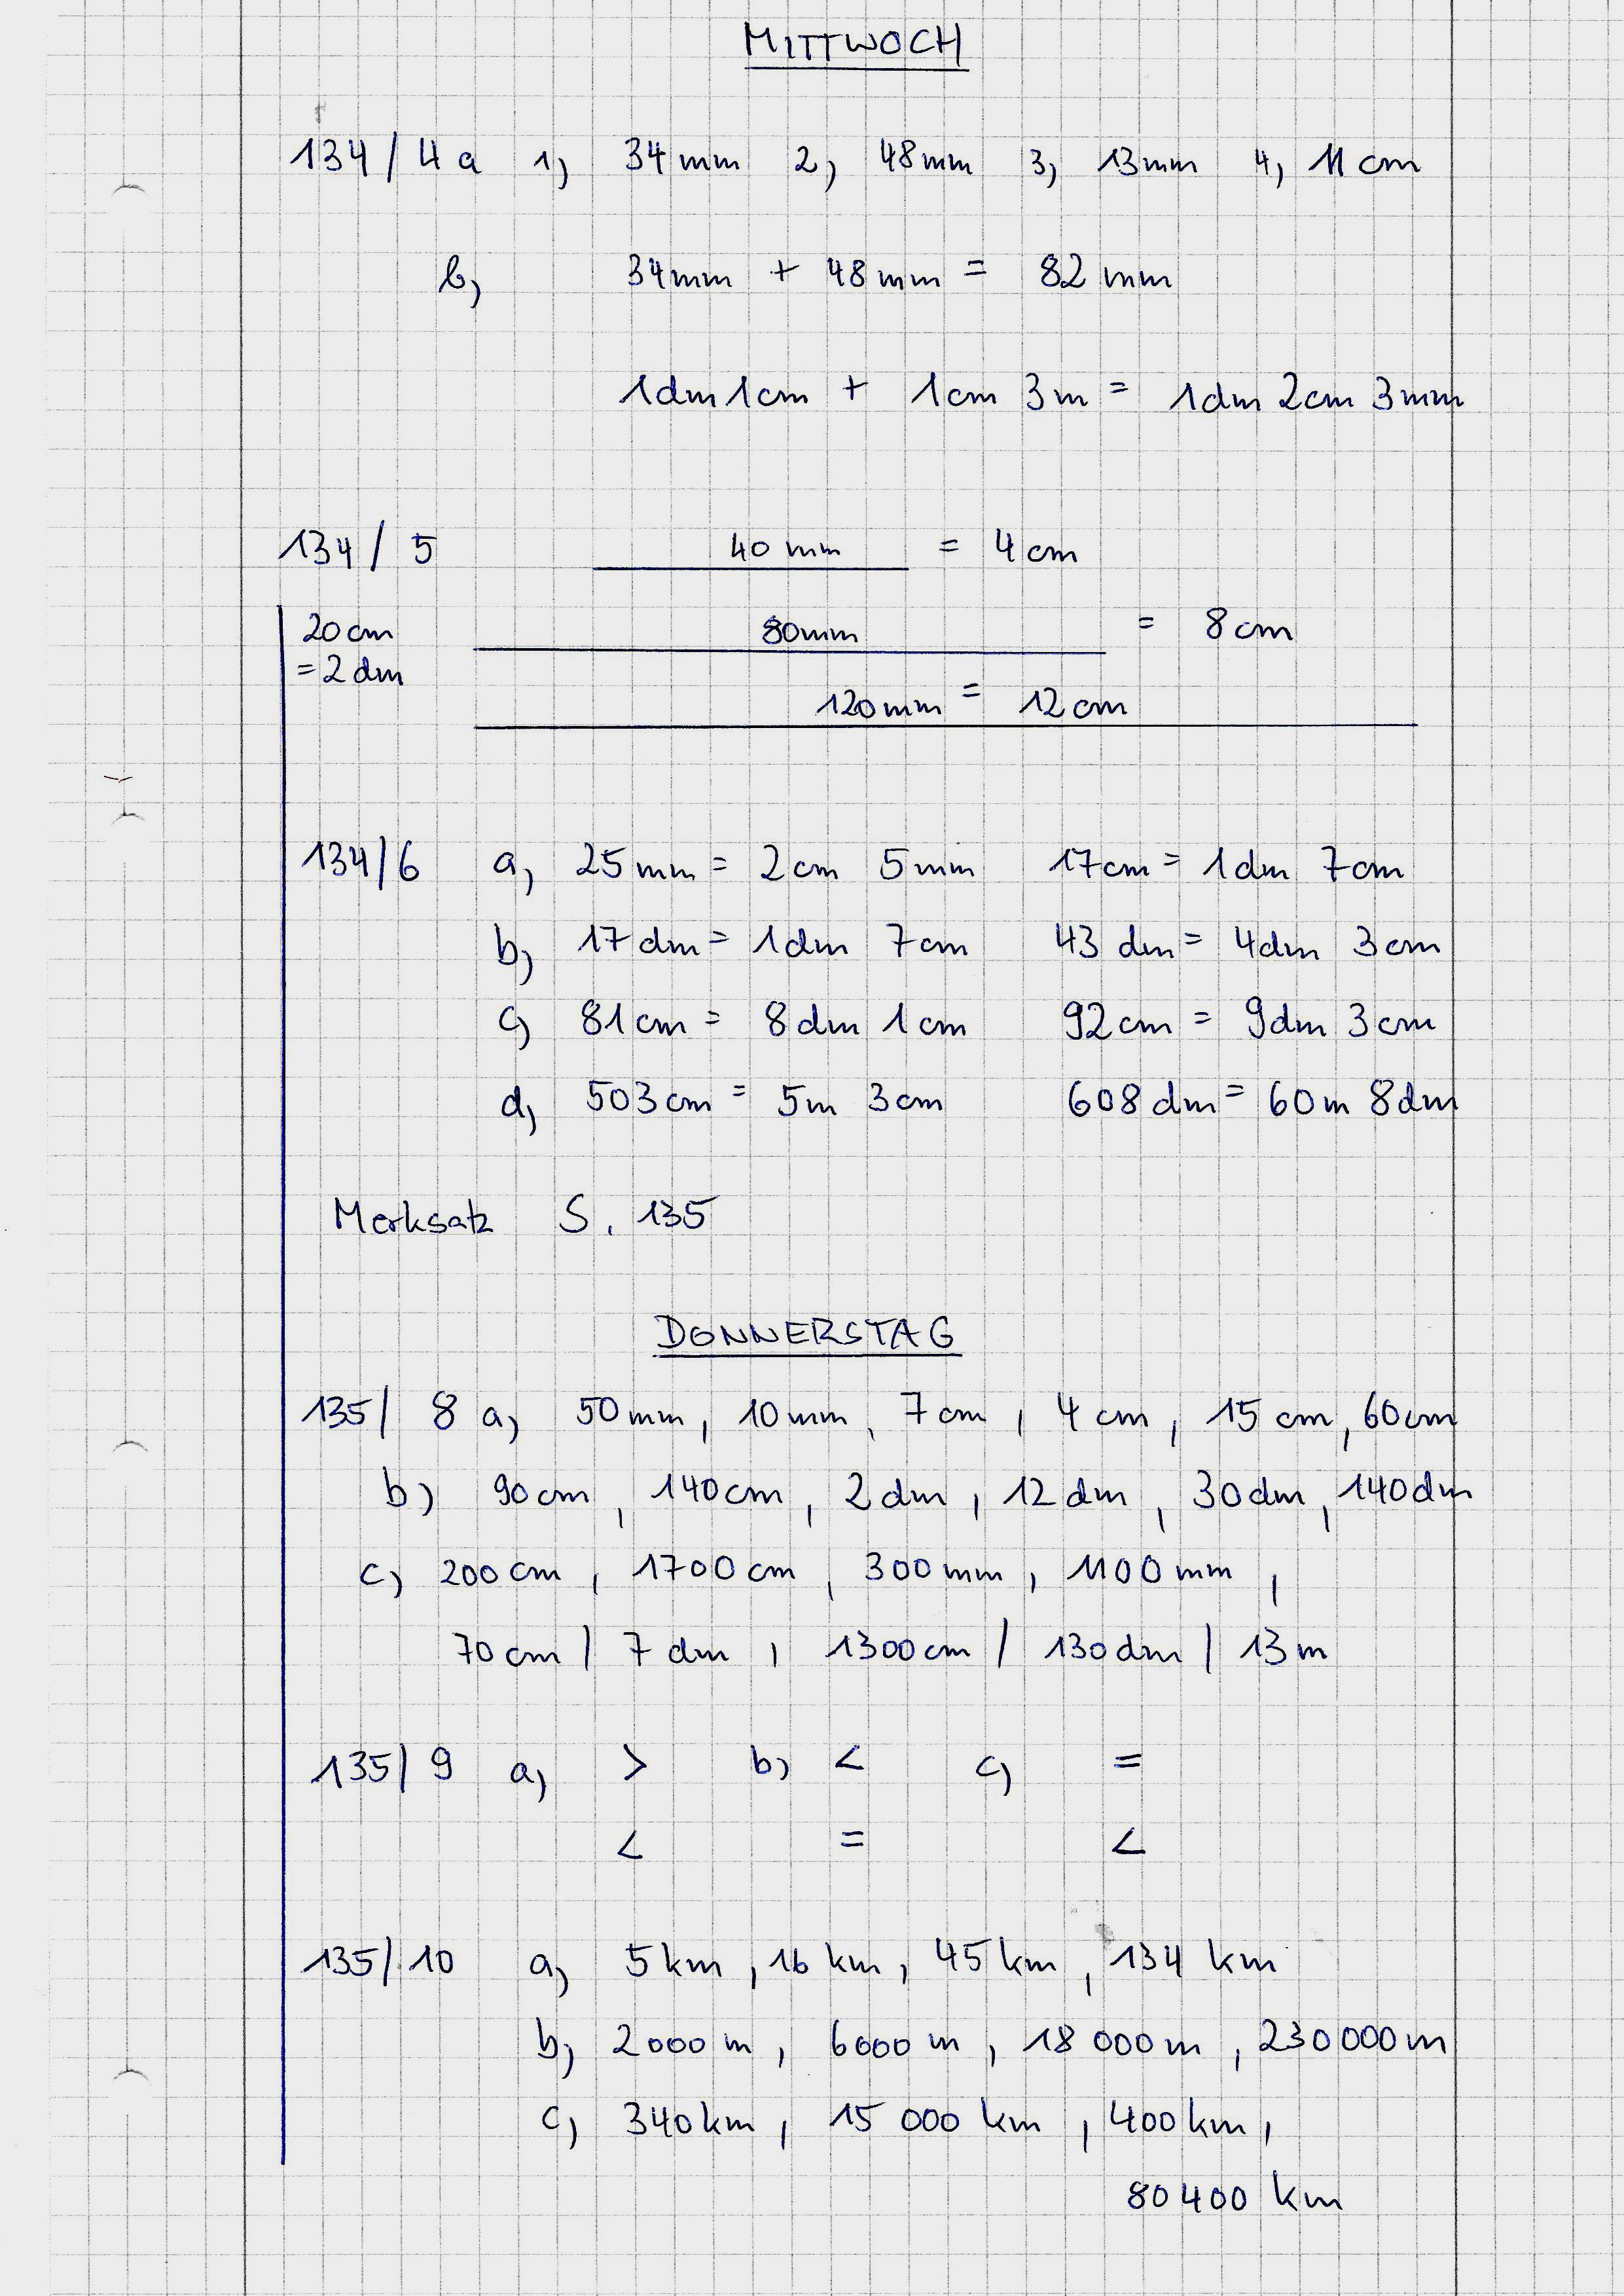 MITTWOCH
134/4a 1) 34mm 2) 48mm 3) 13mm 4) 11cm
b) 34mm + 48mm = 82mm
1dm 1cm + 1cm 3m = 1dm 2cm 3mm
134/5 40mm = 4cm
20cm 80mm = 8cm
=2dm
120mm = 12cm
134/6 a) 25mm = 2cm 5mm 17cm = 1dm 7cm
b) 17dm = 1dm 7cm 43dm = 4dm 3cm
c) 81cm = 8dm 1cm 92cm = 9dm 3cm
d) 503cm = 5m 3cm 608dm = 60m 8dm
Merksatz S. 135
DONNERSTAG
135/ 8 a) 50mm, 10mm, 7cm, 4cm, 15cm, 60cm
b) 90cm, 140cm, 2dm, 12dm, 30dm, 140dm
c) 200cm, 1700cm, 300mm, 1100mm,
70cm / 7dm, 1300cm / 130dm / 13m
135/9 a) > b) < c) =
< = <
135/10 a) 5km, 16km, 45km, 134km
b) 2000m, 6000m, 18 000m, 230 000m
c) 340km, 15 000km, 400km,
80 400 km